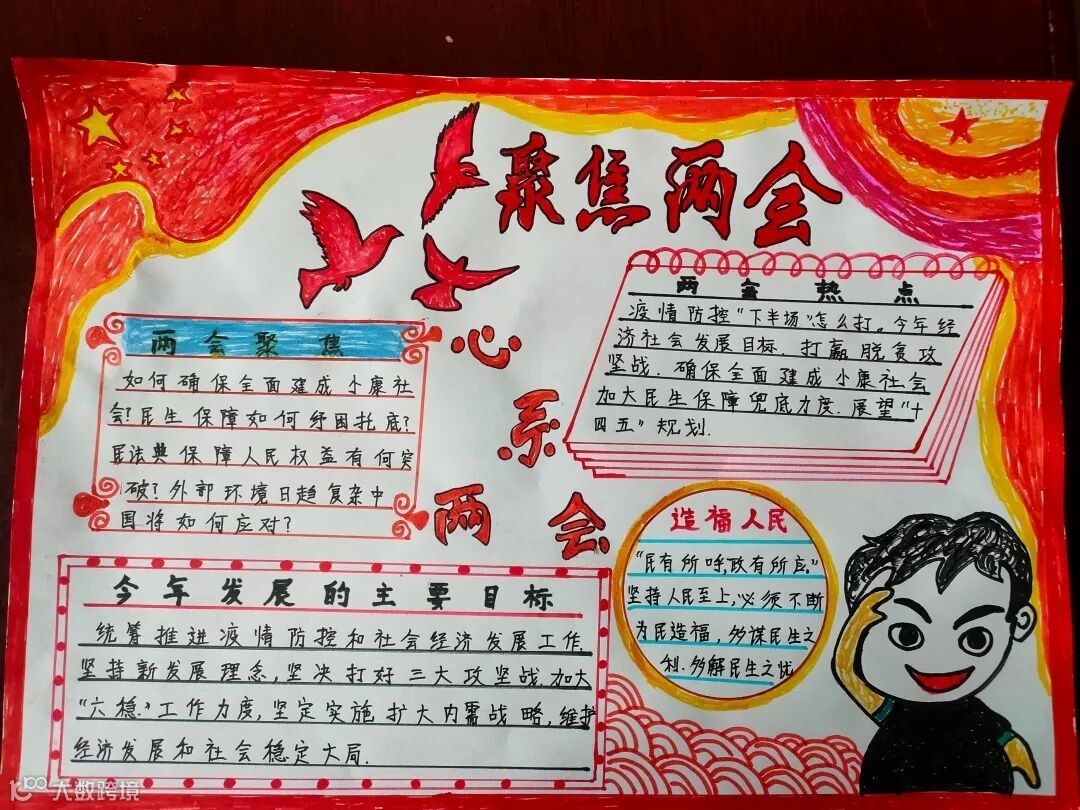 聚焦两会
心系
两会
两会聚焦
如何确保全面建成小康社
会?民生保障如何纾困托底?
民法典保障人民权益有何突
破?外部环境日趋复杂中
国将如何应对?
两会热点
疫情防控“下半场”怎么打。今年经
济社会发展目标.打赢脱贫攻
坚战.确保全面建成小康社会
加大民生保障兜底力度.展望“十
四五”规划.
今年发展的主要目标
统筹推进疫情防控和社会经济发展工作.
坚持新发展理念,坚决打好三大攻坚战.加大
“六稳”工作力度,坚定实施扩大内需战略,维护
经济发展和社会稳定大局.
造福人民
“民有所呼,政有所应.”
坚持人民至上,必须不断
为民造福,多谋民生之
利.多解民生之忧
大数跨境